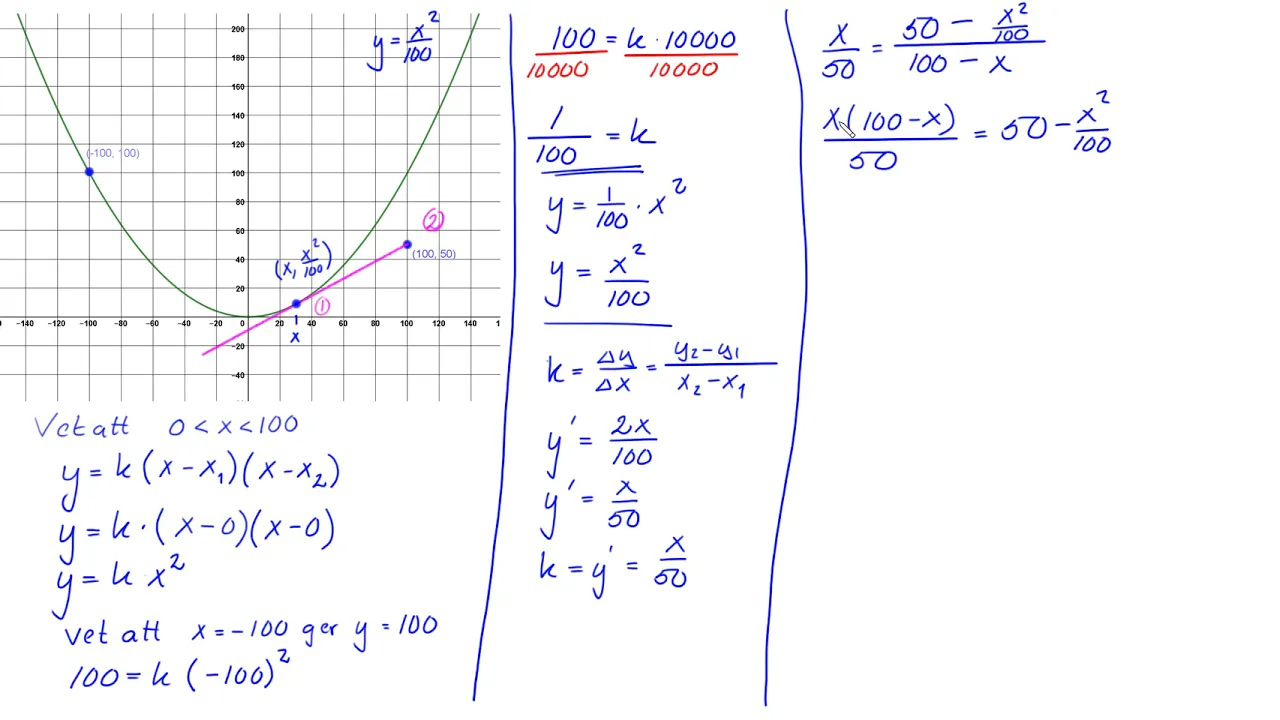 200
180
160
140
120
100
80
60
40
20
-20
-40
-140 -120 -100 -80 -60 -40 -20 0 20 40 60 80 100 120 140 1
y = x²/100
(-100, 100)
②
(100, 50)
(x, x²/100)
①
x
Vet att 0 < x < 100
y = k (x - x₁)(x - x₂)
y = k · (x - 0)(x - 0)
y = k x²
Vet att x = -100 ger y = 100
100 = k (-100)²
100/10000 = k · 10000/10000
1/100 = k
y = 1/100 · x²
y = x²/100
k = Δy/Δx = y₂ - y₁/x₂ - x₁
y' = 2x/100
y' = x/50
k = y' = x/50
x/50 = 50 - x²/100 / 100 - x
x(100 - x)/50 = 50 - x²/100